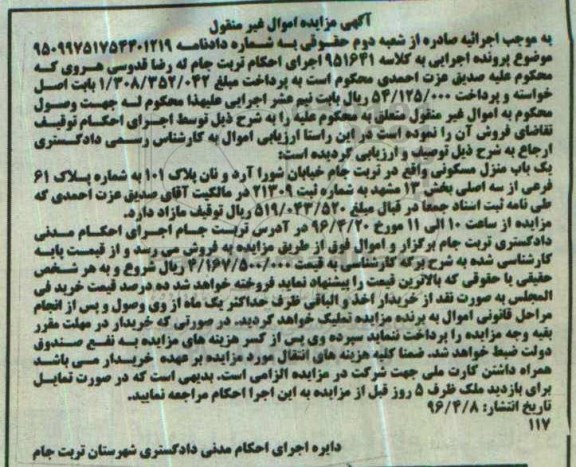 آگهی مزایده اموال غیر منقول
به موجب اجرائیه صادره از شعبه دوم حقوقی به شماره دادنامه ۹۵۰۹۹۷۵۱۷۵۴۴۰۱۲۱۹
موضوع پرونده اجرایی به کلاسه ۹۵۱۶۴۱ اجرای احکام تربت جام که رضا قدوسی هروی که
محکوم علیه صدیق عزت احمدی محکوم است به پرداخت مبلغ ۱/۳۰۸/۳۵۲/۰۴۲ بابت اصل
خواسته و پرداخت ۵۴/۱۲۵/۰۰۰ ریال بابت نیم عشر اجرایی علیهذا محکوم له جهت وصول
محکوم به اموال غیر منقول متعلق به محکوم علیه را به شرح ذیل توسط اجرای احکام توقیف
تقاضای فروش آن را نموده است در این راستا ارزیابی اموال به کارشناس رسمی دادگستری
ارجاع به شرح ذیل توصیف و ارزیابی گردیده است:
یک باب منزل مسکونی واقع در تربت جام خیابان شورا آرد و نان پلاک ۱۰۱ به شماره پلاک ۶۱
فرعی از سه اصلی بخش ۱۳ مشهد به شماره ثبت ۲۱۳۰۹ در مالکیت آقای صدیق عزت احمدی که
طی نامه ثبت اسناد جمعا در قبال مبلغ ۵۱۹/۰۴۳/۵۲۰ ریال توقیف مازاد دارد.
مزایده از ساعت ۱۰ الی ۱۱ مورخ ۹۶/۴/۲۰ در آدرس تربت جام اجرای احکام مدنی
دادگستری تربت جام برگزار و اموال فوق از طریق مزایده به فروش می رسد و از قیمت پایه
کارشناسی شده به شرح برگه کارشناسی به قیمت ۴/۱۶۷/۵۰۰/۰۰۰ ریال شروع و به هر شخص
حقیقی یا حقوقی که بالاترین قیمت را پیشنهاد نماید فروخته خواهد شد ده درصد قیمت خرید فی
المجلس به صورت نقد از خریدار اخذ و الباقی ظرف حداکثر یک ماه از وی وصول و پس از انجام
مراحل قانونی اموال به برنده مزایده تملیک خواهد گردید. در صورتی که خریدار در مهلت مقرر
بقیه وجه مزایده را پرداخت ننماید سپرده وی پس از کسر هزینه های مزایده به نفع صندوق
دولت ضبط خواهد شد. ضمنا کلیه هزینه های انتقال مورد مزایده بر عهده خریدار می باشد
همراه داشتن کارت ملی جهت شرکت در مزایده الزامی است. بدیهی است که در صورت تمایل
برای بازدید ملک ظرف ۵ روز قبل از مزایده به این اجرا احکام مراجعه نمایید.
تاریخ انتشار: ۹۶/۴/۸
۱۱۷
دایره اجرای احکام مدنی دادگستری شهرستان تربت جام